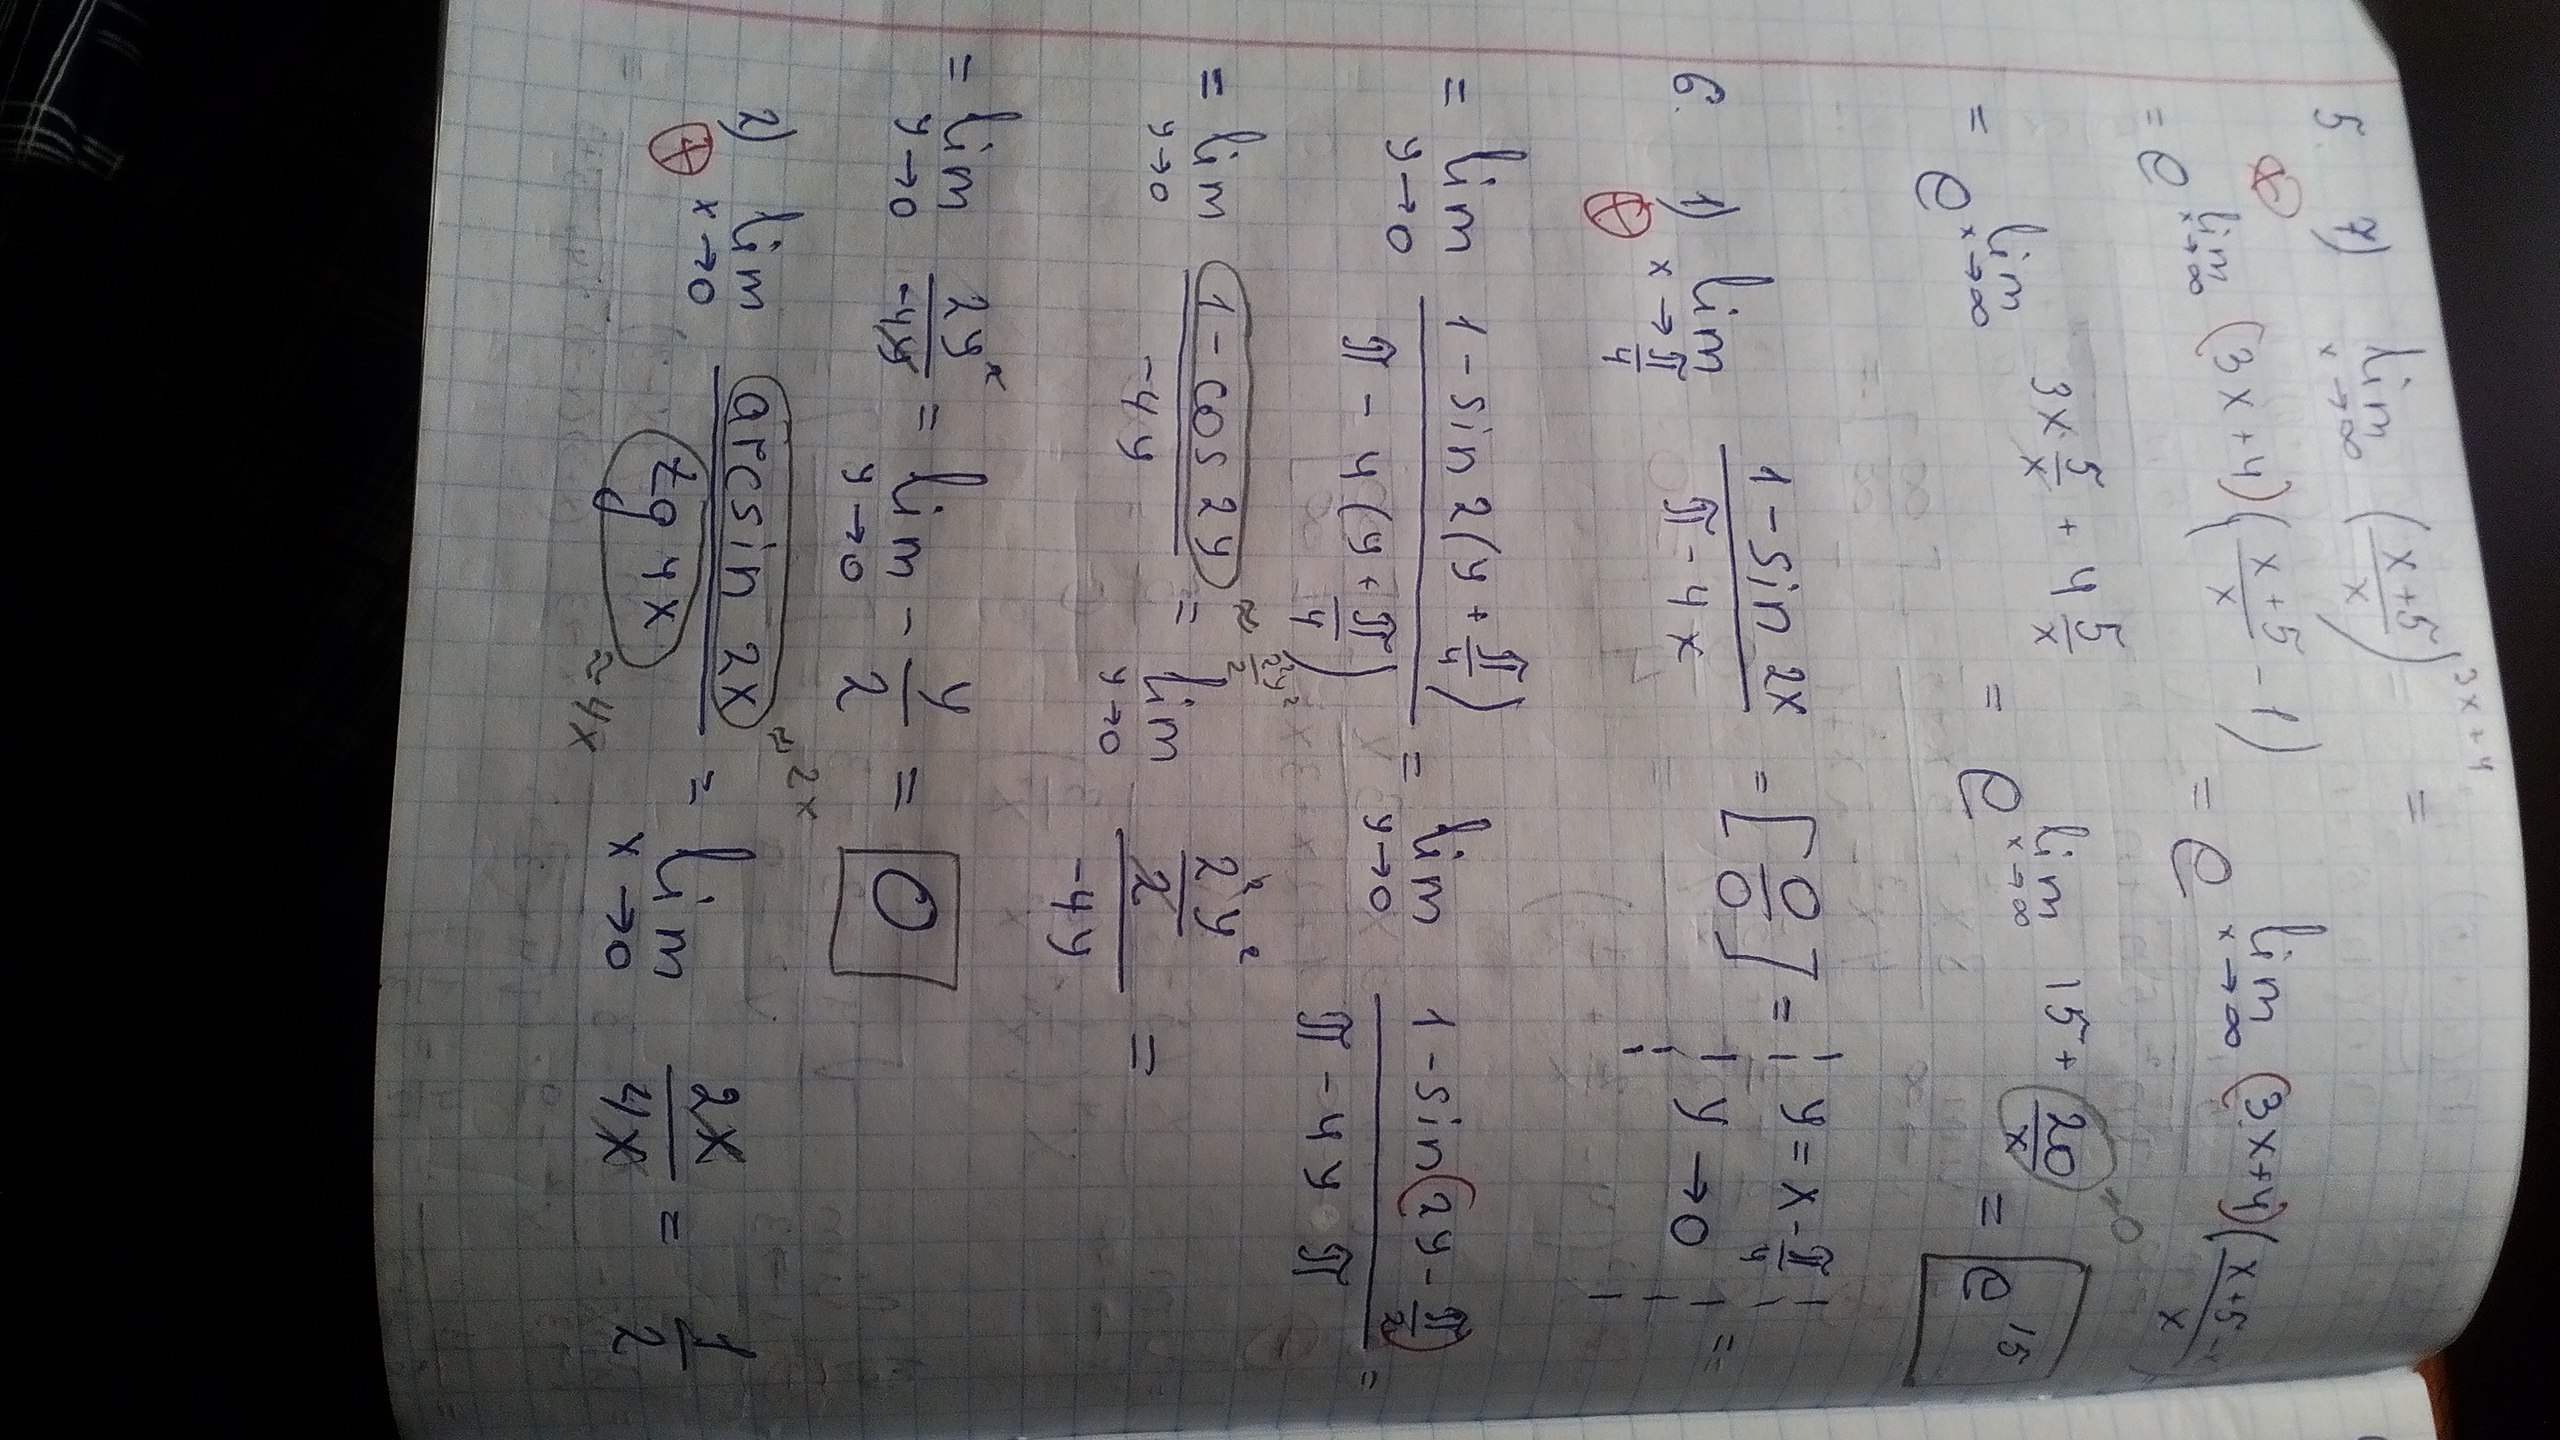 5. 7) lim x→∞ ((x+5)/x)^(3x+4) =
= e^(lim x→∞ (3x+4)((x+5)/x - 1)) = e^(lim x→∞ (3x+4)((x+5-x)/x))
= e^(lim x→∞ 3x·5/x + 4 5/x) = e^(lim x→∞ 15 + 20/x) = e^15
→0
6. 1) lim x→π/4 (1 - sin 2x)/(π - 4x) = [0/0] = | y = x - π/4 | =
y → 0
= lim y→0 (1 - sin 2(y + π/4))/(π - 4(y + π/4)) = lim y→0 (1 - sin(2y - π/2))/(π - 4y π) =
= lim y→0 (1 - cos 2y)/(-4y) = lim y→0 (2²y²/2)/(-4y) =
≈ 2²y²/2
= lim y→0 2y²/(-4y) = lim y→0 - y/2 = 0
2) lim x→0 (arcsin 2x)/(tg 4x) = lim x→0 2x/4x = 1/2
≈ 2x
≈ 4x